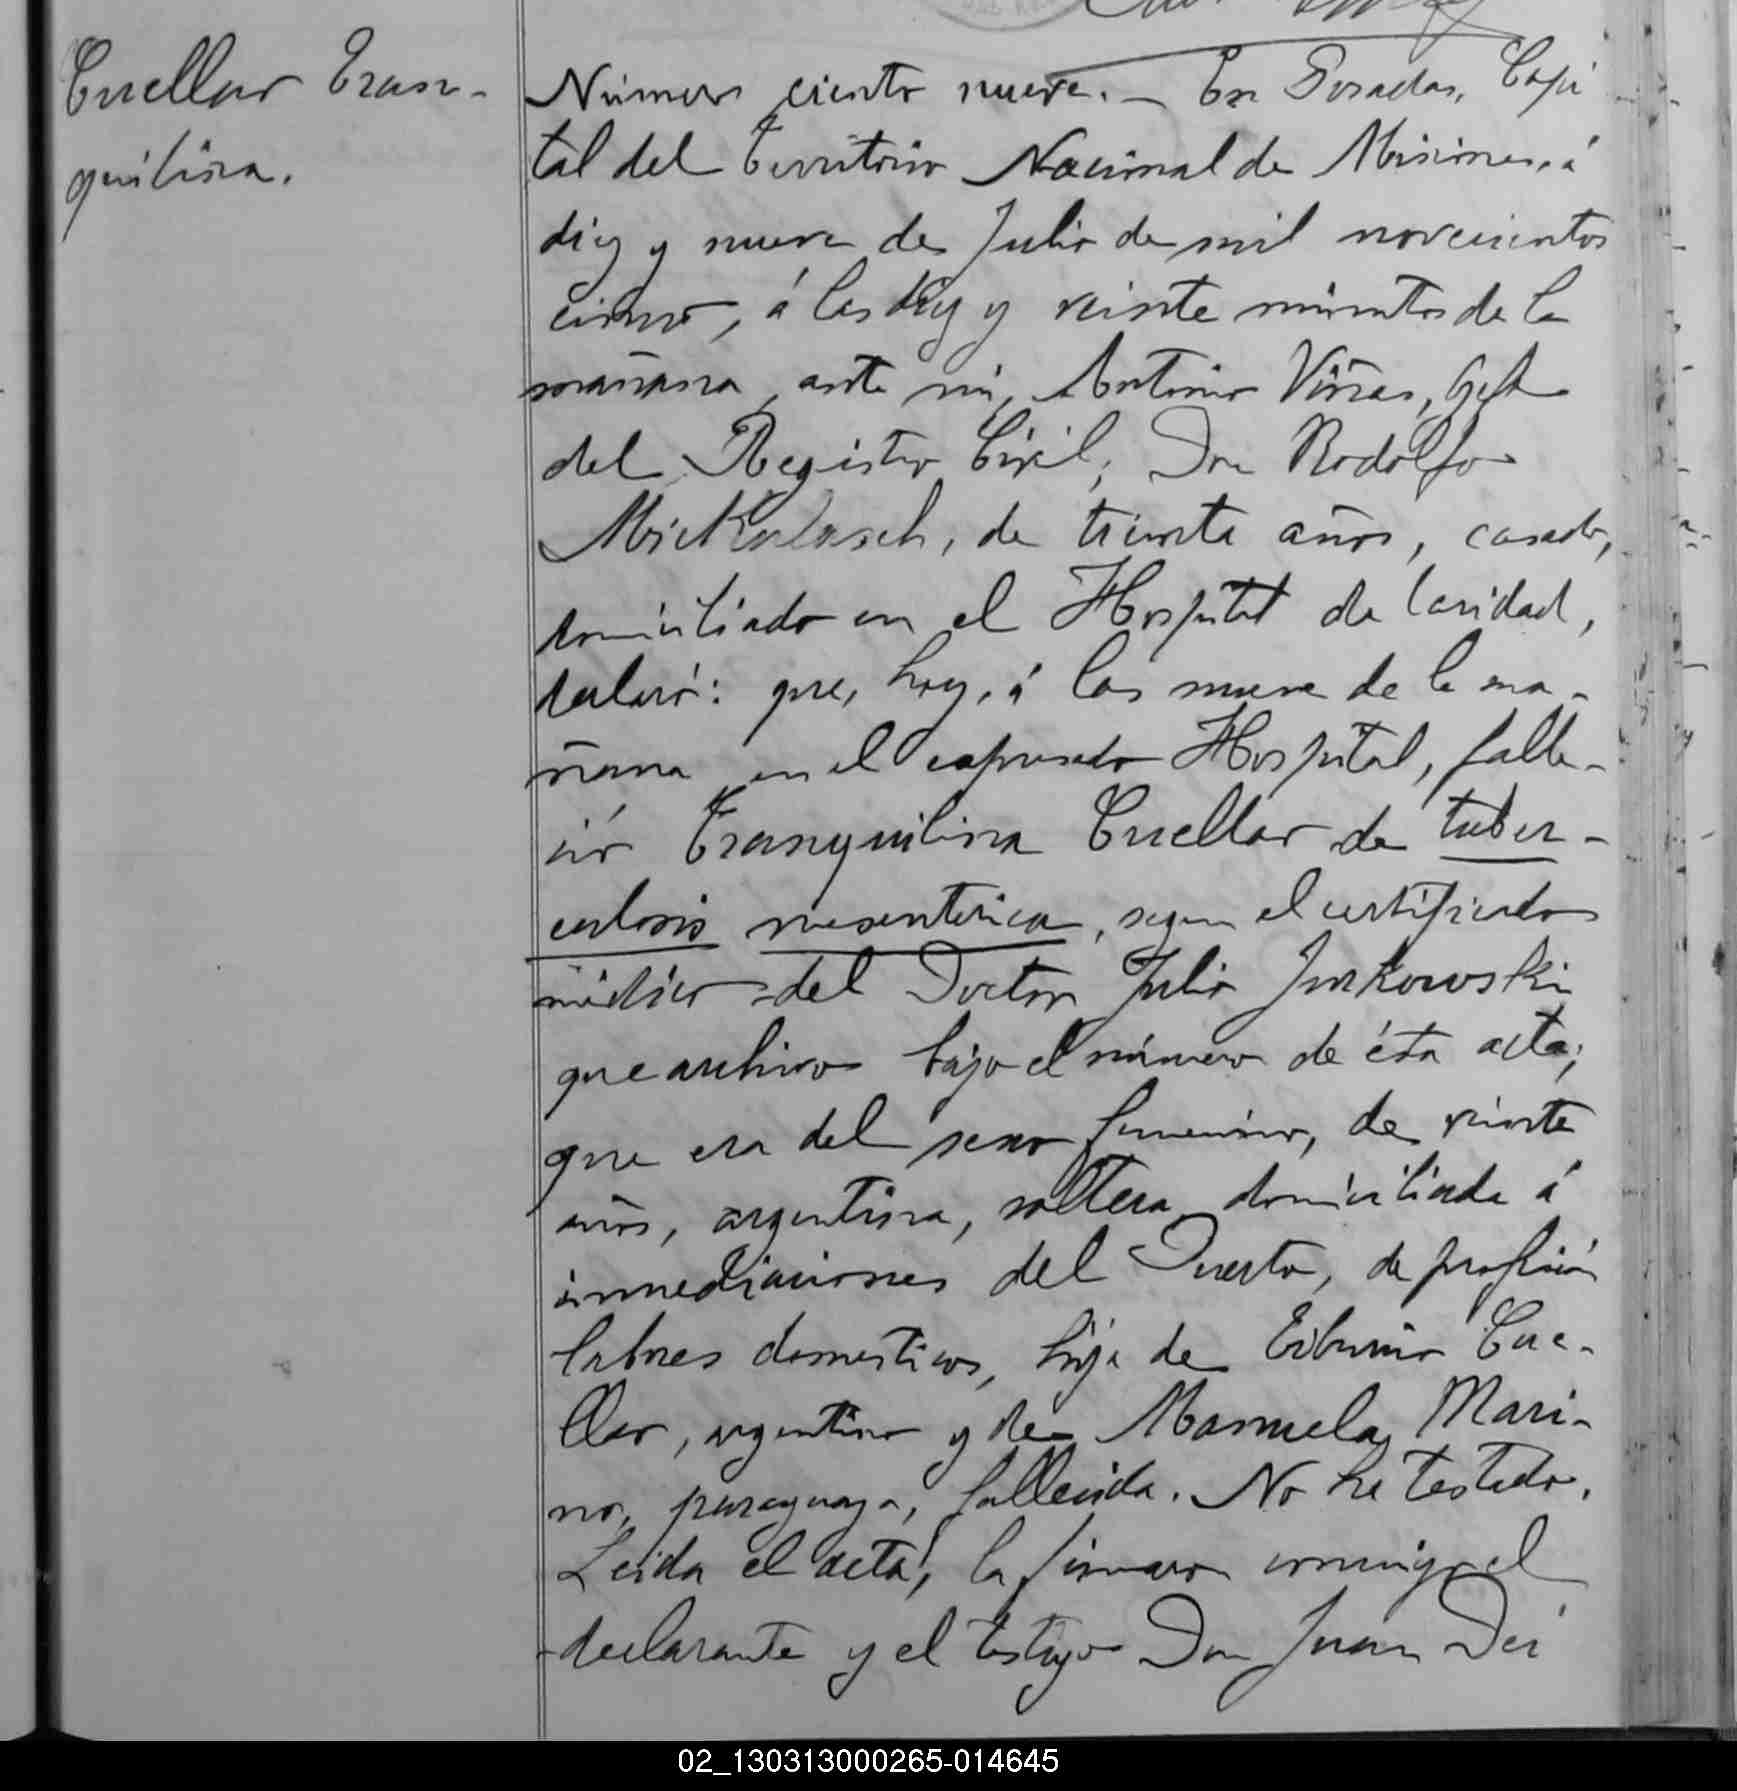 Cuellar Tran-
quilina.
Número ciento nueve. — En Posadas, Capi
tal del Territorio Nacional de Misiones, á
diez y nueve de Julio de mil novecientos
cinco, á las diez y veinte minutos de la
mañana, ante mi, Antonio Viñas, Gefe
del Registro Civil, Don Rodolfo
Mickulasch, de treinta años, casado,
domiciliado en el Hospital de Caridad,
declaró: que, hoy, á las nueve de la ma-
ñana en el expresado Hospital, falle-
ció Tranquilina Cuellar de tuber-
culosis mesenterica, segun el certificado
médico del Doctor Julio Jurkowski
que archivo bajo el número de ésta acta;
que era del sexo femenino, de veinte
años, argentina, soltera domiciliada á
inmediaciones del Puerto, de profesión
labores domesticos, hija de Cue-
llar, argentino y de Manuela Mari-
no, paraguaya, fallecida. No ha testado.
Leida el acta, la firmaron conmigo el
declarante y el testigo Don Juan Dei
02_130313000265-014645